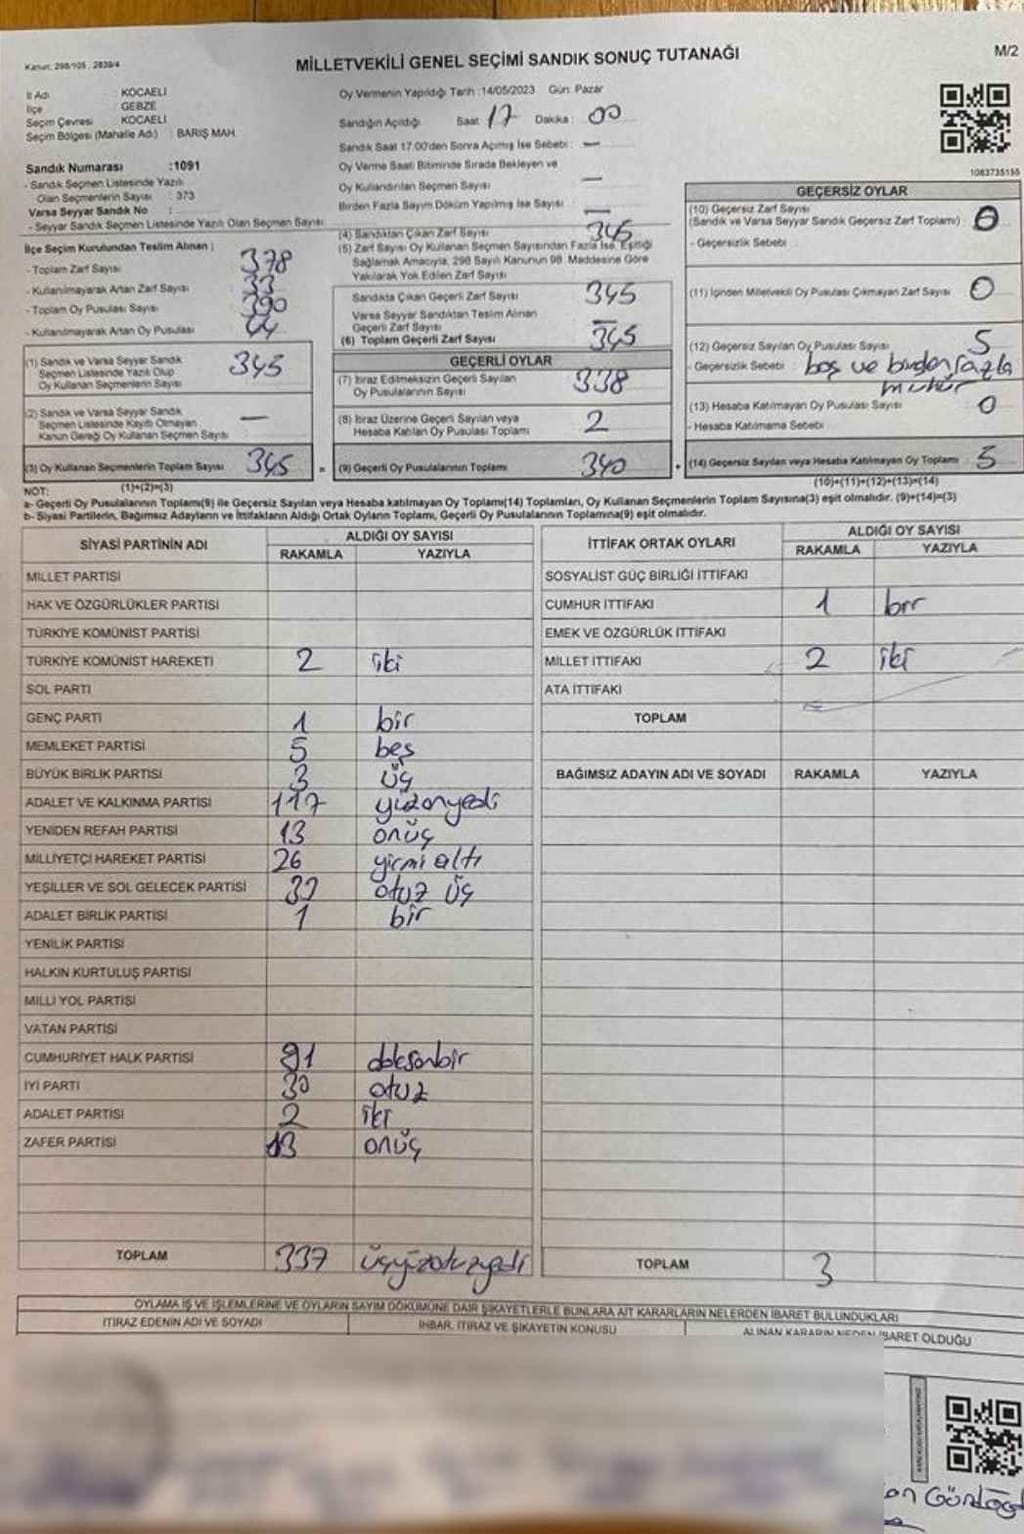 Kanun: 298/105 , 2839/4
MİLLETVEKİLİ GENEL SEÇİMİ SANDIK SONUÇ TUTANAĞI
M/2
İl Adı : KOCAELİ
İlçe : GEBZE
Seçim Çevresi : KOCAELİ
Seçim Bölgesi (Mahalle Adı) : BARIŞ MAH.
Sandık Numarası :1091
- Sandık Seçmen Listesinde Yazılı
Olan Seçmenlerin Sayısı : 373
Varsa Seyyar Sandık No :
- Seyyar Sandık Seçmen Listesinde Yazılı Olan Seçmen Sayısı:
İlçe Seçim Kurulundan Teslim Alınan ;
- Toplam Zarf Sayısı 378
- Kullanılmayarak Artan Zarf Sayısı 33
- Toplam Oy Pusulası Sayısı 390
- Kullanılmayarak Artan Oy Pusulası
(1) Sandık ve Varsa Seyyar Sandık
Seçmen Listesinde Yazılı Olup
Oy Kullanan Seçmenlerin Sayısı 345
(2) Sandık ve Varsa Seyyar Sandık
Seçmen Listesinde Kayıtlı Olmayan
Kanun Gereği Oy Kullanan Seçmen Sayısı —
(3) Oy Kullanan Seçmenlerin Toplam Sayısı 345
Oy Vermenin Yapıldığı Tarih :14/05/2023 Gün: Pazar
Sandığın Açıldığı Saat 17 Dakika : 00
Sandık Saat 17.00'den Sonra Açılmış İse Sebebi : —
Oy Verme Saati Bitiminde Sırada Bekleyen ve
Oy Kullandırılan Seçmen Sayısı —
Birden Fazla Sayım Döküm Yapılmış İse Sayısı : —
(4) Sandıktan Çıkan Zarf Sayısı 345
(5) Zarf Sayısı Oy Kullanan Seçmen Sayısından Fazla İse, Eşitliği
Sağlamak Amacıyla, 298 Sayılı Kanunun 98. Maddesine Göre
Yakılarak Yok Edilen Zarf Sayısı —
Sandıkta Çıkan Geçerli Zarf Sayısı 345
Varsa Seyyar Sandıktan Teslim Alınan
Geçerli Zarf Sayısı —
(6) Toplam Geçerli Zarf Sayısı 345
GEÇERLİ OYLAR
(7) İtiraz Edilmeksizin Geçerli Sayılan
Oy Pusulalarının Sayısı 338
(8) İtiraz Üzerine Geçerli Sayılan veya
Hesaba Katılan Oy Pusulası Toplamı 2
= (9) Geçerli Oy Pusulalarının Toplamı 340
1083735155
GEÇERSİZ OYLAR
(10) Geçersiz Zarf Sayısı
(Sandık ve Varsa Seyyar Sandık Geçersiz Zarf Toplamı) 0
- Geçersizlik Sebebi
(11) İçinden Milletvekili Oy Pusulası Çıkmayan Zarf Sayısı 0
(12) Geçersiz Sayılan Oy Pusulası Sayısı 5
- Geçersizlik Sebebi : boş ve birden fazla
mühür
(13) Hesaba Katılmayan Oy Pusulası Sayısı 0
- Hesaba Katılmama Sebebi
+ (14) Geçersiz Sayılan veya Hesaba Katılmayan Oy Toplamı 5
NOT: (1)+(2)=(3)
(10)+(11)+(12)+(13)=(14)
a- Geçerli Oy Pusulalarının Toplamı(9) ile Geçersiz Sayılan veya Hesaba katılmayan Oy Toplamı(14) Toplamları, Oy Kullanan Seçmenlerin Toplam Sayısına(3) eşit olmalıdır. (9)+(14)=(3)
b- Siyasi Partilerin, Bağımsız Adayların ve İttifakların Aldığı Ortak Oyların Toplamı, Geçerli Oy Pusulalarının Toplamına(9) eşit olmalıdır.
SİYASİ PARTİNİN ADI
ALDIĞI OY SAYISI
RAKAMLA YAZIYLA
MİLLET PARTİSİ
HAK VE ÖZGÜRLÜKLER PARTİSİ
TÜRKİYE KOMÜNİST PARTİSİ
TÜRKİYE KOMÜNİST HAREKETİ 2 iki
SOL PARTİ
GENÇ PARTİ 1 bir
MEMLEKET PARTİSİ 5 beş
BÜYÜK BİRLİK PARTİSİ 3 üç
ADALET VE KALKINMA PARTİSİ 117 yüzonyedi
YENİDEN REFAH PARTİSİ 13 onüç
MİLLİYETÇİ HAREKET PARTİSİ 26 yirmi altı
YEŞİLLER VE SOL GELECEK PARTİSİ 33 otuz üç
ADALET BİRLİK PARTİSİ 1 bir
YENİLİK PARTİSİ
HALKIN KURTULUŞ PARTİSİ
MİLLİ YOL PARTİSİ
VATAN PARTİSİ
CUMHURİYET HALK PARTİSİ 91 doksanbir
İYİ PARTİ 30 otuz
ADALET PARTİSİ 2 iki
ZAFER PARTİSİ 13 onüç
TOPLAM 337 üçyüzotuzyedi
İTTİFAK ORTAK OYLARI
ALDIĞI OY SAYISI
RAKAMLA YAZIYLA
SOSYALİST GÜÇ BİRLİĞİ İTTİFAKI
CUMHUR İTTİFAKI 1 bir
EMEK VE ÖZGÜRLÜK İTTİFAKI
MİLLET İTTİFAKI 2 iki
ATA İTTİFAKI
TOPLAM
BAĞIMSIZ ADAYIN ADI VE SOYADI RAKAMLA YAZIYLA
TOPLAM 3
OYLAMA İŞ VE İŞLEMLERİNE VE OYLARIN SAYIM DÖKÜMÜNE DAİR ŞİKAYETLERLE BUNLARA AİT KARARLARIN NELERDEN İBARET BULUNDUKLARI
İTİRAZ EDENİN ADI VE SOYADI
İHBAR, İTİRAZ VE ŞİKAYETİN KONUSU
ALINAN KARARIN NEDEN İBARET OLDUĞU